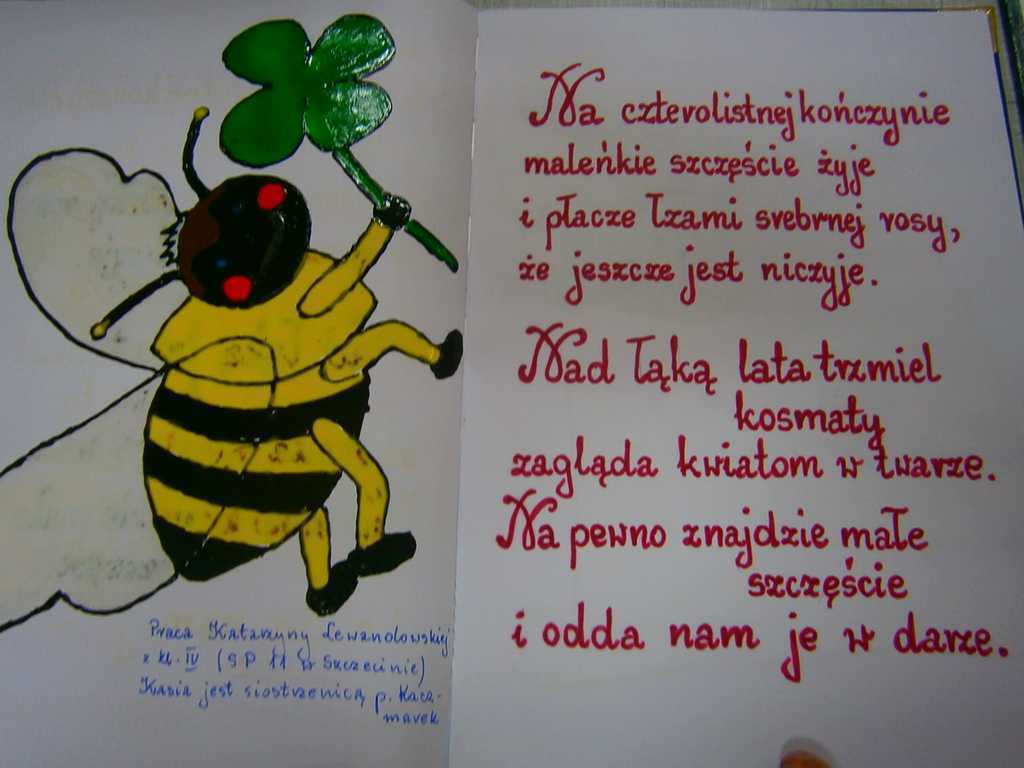 Na czterolistnej kończynie
maleńkie szczęście żyje
i płacze łzami srebrnej rosy,
że jeszcze jest niczyje.
Nad łąką lata trzmiel
kosmaty
zagląda kwiatom w twarze.
Na pewno znajdzie małe
szczęście
i odda nam je w darze.
Praca Katarzyny Lewandowskiej
z kl. IV (SP 11 w Szczecinie)
Kasia jest siostrzenicą p. Kacz-
marek